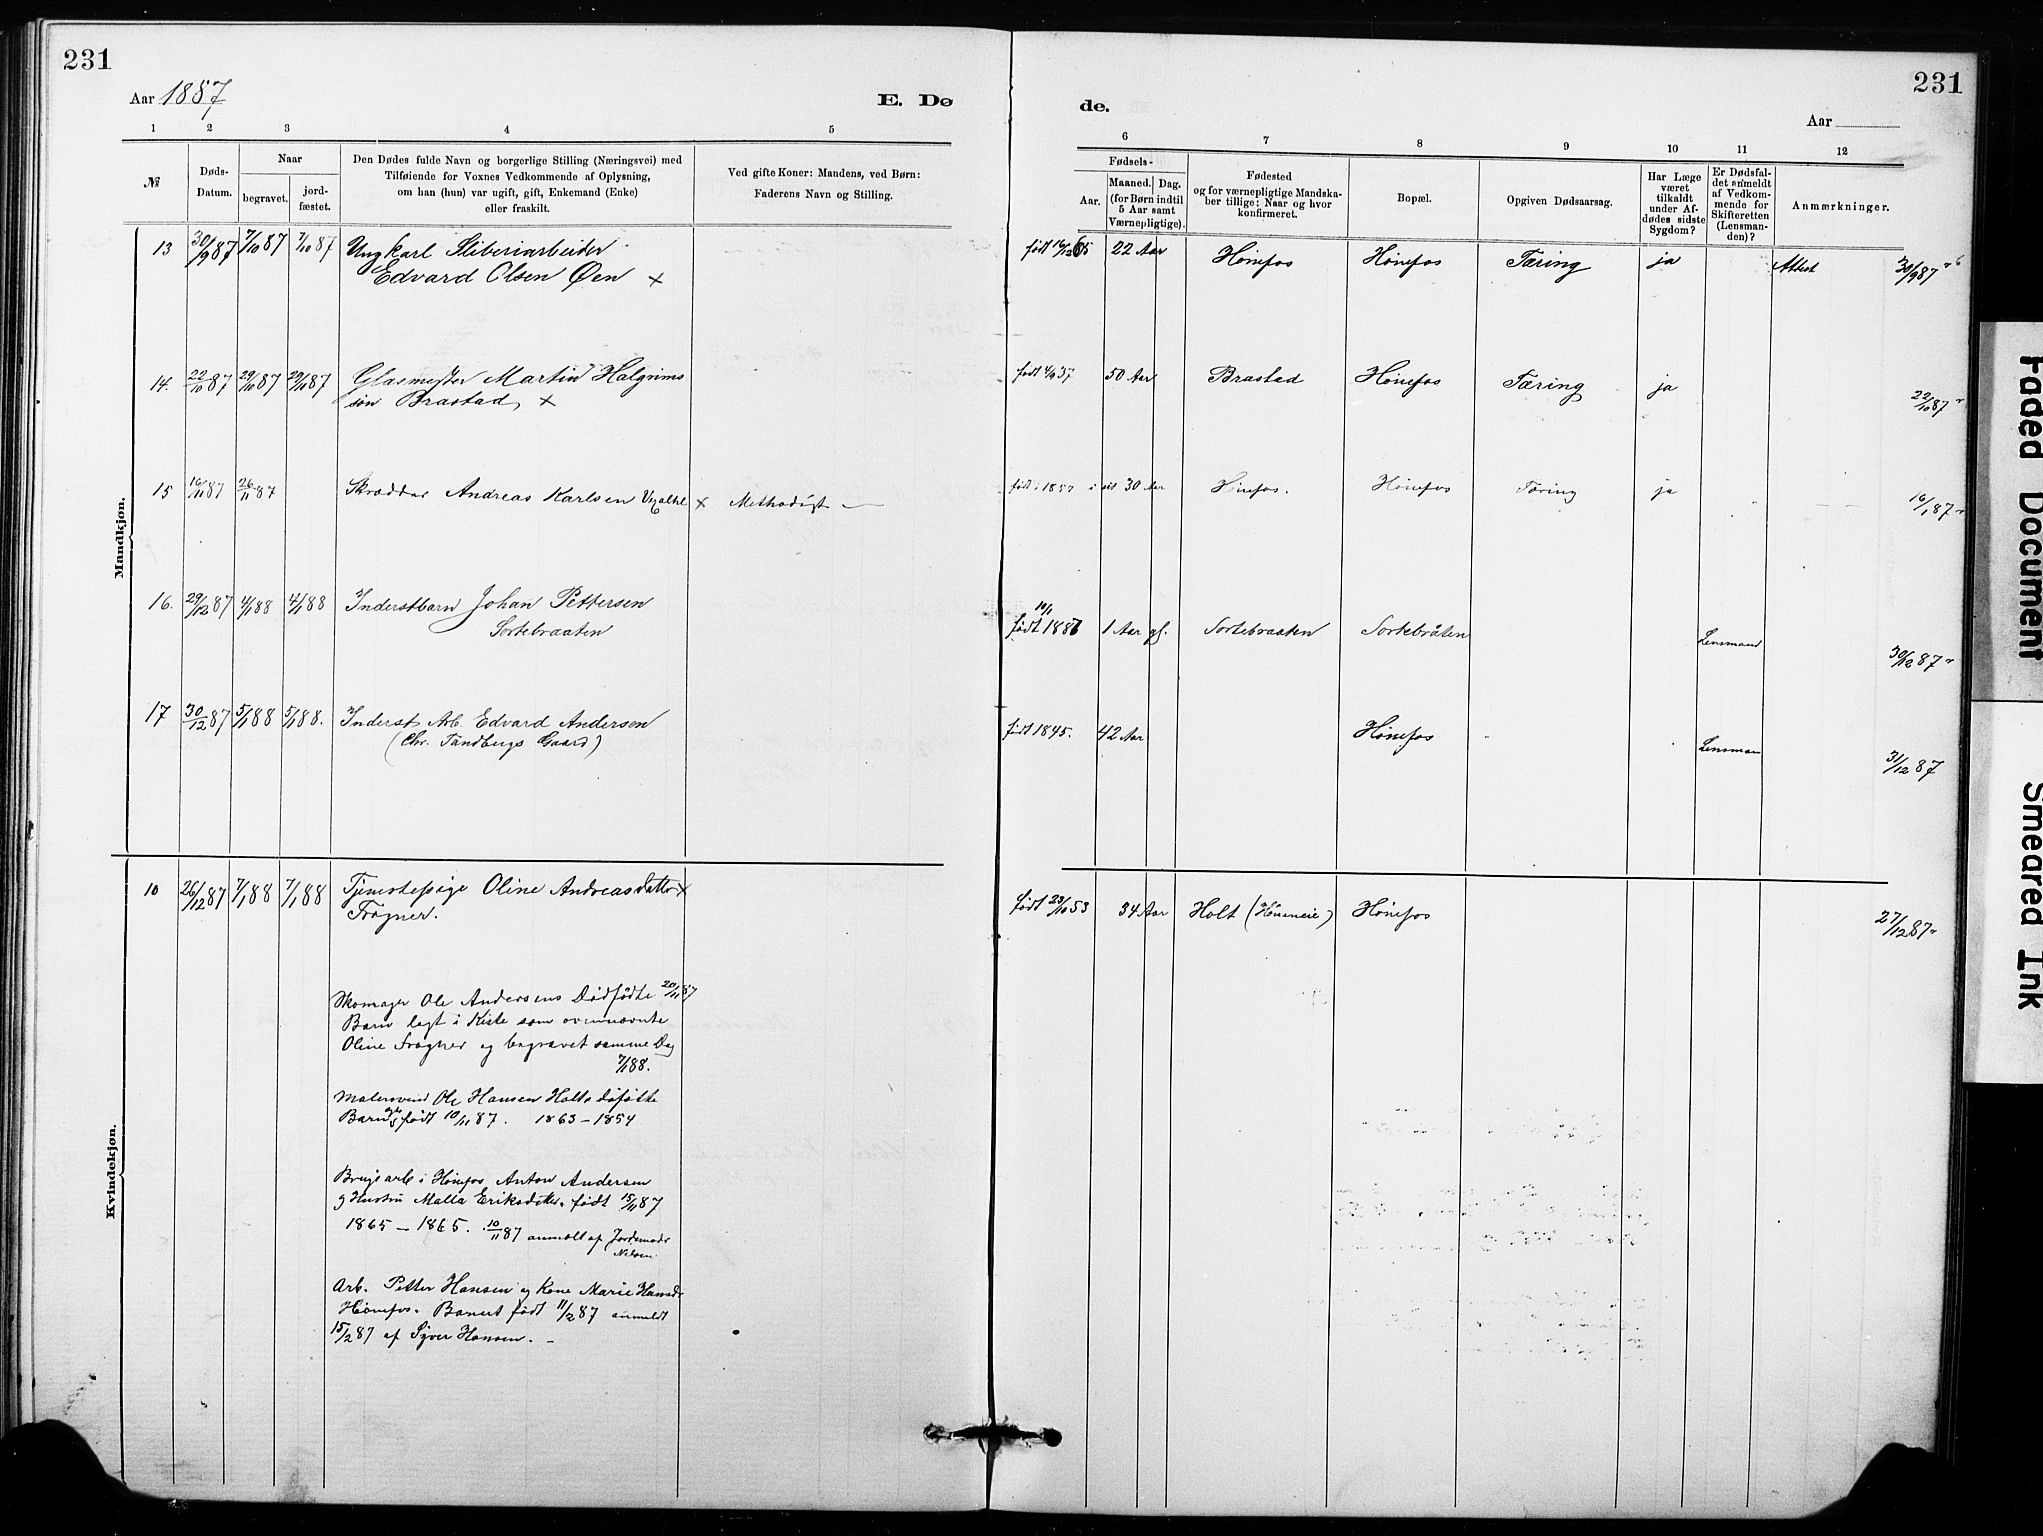 231
Aar 1887
E. Dø
1 2 3 4 5
№
Døds-
Datum.
Naar
begravet.
jord-
fæstet.
Den Dødes fulde Navn og borgerlige Stilling (Næringsvei) med
Tilføiende for Voxnes Vedkommende af Oplysning,
om han (hun) var ugift, gift, Enkemand (Enke)
eller fraskilt.
Ved gifte Koner: Mandens, ved Børn:
Faderens Navn og Stilling.
Mandkjøn.
13 30/9 87 7/10 87 7/10 87 Ungkarl Sliberiarbeider
Edvard Olsen Øen ×
14. 22/10 87 29/10 87 29/10 87 Glasmester Martin Halgrims
søn Brastad, ×
15 16/11 87 26/11 87 Skrædder Andreas Karlsen × Methodist —
16. 29/12 87 4/1 88 4/1 88 Inderstbarn Johan Pettersen
Sortebraaten
17 30/12 87 5/1 88 5/1 88. Inderst Arb. Edvard Andersen
(Chr. Tandbergs Gaard)
Kvindekjøn.
10 26/12 87 7/1 88 7/1 88 Tjenestepige Oline Andreasdatter ×
Frogner.
Skomager Ole Andersens Dødfødte 20/11 87
Barn lagt i Kiste som ovennævnte
Oline Frogner og begravet samme Dag
7/1 88.
Malersvend Ole Hansen Holts døføtte
Barn født 10/11 87. 1863 – 1854
Brugsarb i Hønefos Anton Andersen
g Hustru Malla Eriksdtter. født 15/11 87
1865 – 1865. 10/11 87 anmeldt af Jordemoder
Nilsen
Arb. Petter Hansen og Kone Marie Hansdr
Hønefos. Barnet født 11/2 87 anmeldt
15/2 87 af Syver Hansen. –
231
de.
Aar
6 7 8 9 10 11 12
Fødsels-
Aar.
Maaned. Dag.
(for Børn indtil
5 Aar samt
Værnepligtige).
Fødested
og for værnepligtige Mandska-
ber tillige: Naar og hvor
konfirmeret.
Bopæl.
Opgiven Dødsaarsag.
Har Læge
været
tilkaldt
under Af-
dødes sidste
Sygdom?
Er Dødsfal-
det anmeldt
af Vedkom-
mende for
Skifteretten
(Lensman-
den)?
Anmærkninger.
født 16/12 65 22 Aar Hønefos Hønefos Tæring ja Attest 30/9 87
født 4/10 37 50 Aar Brastad Hønefos Tæring ja 22/10 87 "
født i 1857 30 Aar Hønefos. Hønefos Tæring ja 16/1 87 "
10/1
født 1886 1 Aar gl. Sortebraaten Sortebråten Lensmand 30/12 87 "
født 1845. 42 Aar Hønefos Lensman 31/12 87
født 23/10 53 34 Aar Holt (Hønneeie) Hønefos 27/12 87 "
Faded Document
Smeared Ink